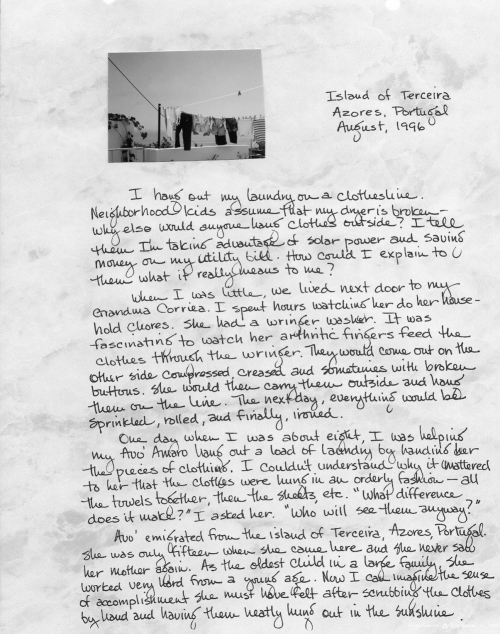 Island of Terceira
Azores, Portugal
August, 1996
I hang out my laundry on a clothesline.
Neighborhood kids assume that my dryer is broken –
why else would anyone hang clothes outside? I tell
them I'm taking advantage of solar power and saving
money on my utility bill. How could I explain to
them what it really means to me?
When I was little, we lived next door to my
Grandma Corriea. I spent hours watching her do her house-
hold chores. She had a wringer washer. It was
fascinating to watch her arthritic fingers feed the
clothes through the wringer. They would come out on the
other side compressed, creased and sometimes with broken
buttons. She would then carry them outside and hang
them on the line. The next day, everything would be
sprinkled, rolled, and finally, ironed.
One day when I was about eight, I was helping
my Avo' Amaro hang out a load of laundry by handing her
the pieces of clothing. I couldn't understand why it mattered
to her that the clothes were hung in an orderly fashion – all
the towels together, then the sheets, etc. "What difference
does it make?" I asked her. "Who will see them anyway?"
Avo' emigrated from the island of Terceira, Azores, Portugal.
She was only fifteen when she came here and she never saw
her mother again. As the oldest child in a large family, she
worked very hard from a young age. Now I can imagine the sense
of accomplishment she must have felt after scrubbing the clothes
by hand and having them neatly hung out in the sunshine.